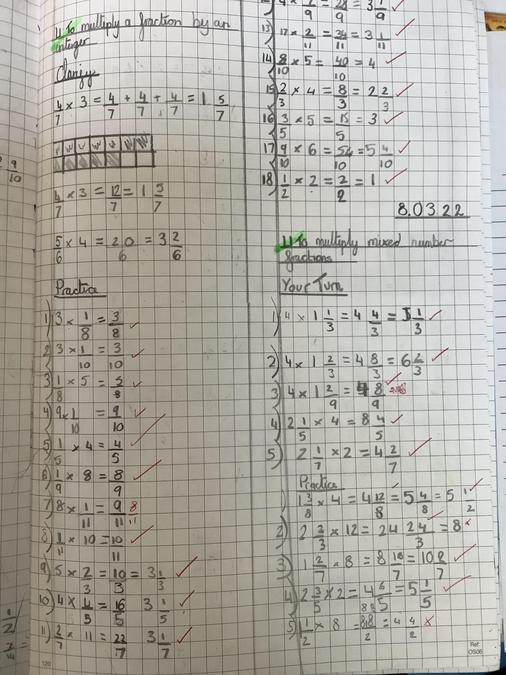 LI To multiply a fraction by an
integer
4/7 × 3 = 4/7 + 4/7 + 4/7 = 1 5/7
4/7 × 3 = 12/7 = 1 5/7
5/6 × 4 = 20/6 = 3 2/6
Practice
1) 3 × 1/8 = 3/8
2) 3 × 1/10 = 3/10
3) 1/8 × 5 = 5/8
4) 9 × 1/10 = 9/10
5) 1/5 × 4 = 4/5
6) 1/9 × 8 = 8/9
7) 8 × 1/11 = 9/11 8/11
8) 1/11 × 10 = 10/11
9) 5 × 2/3 = 10/3 = 3 1/3
10) 4 × 4/5 = 16/5 3 1/5
11) 2/7 × 11 = 22/7 3 1/7
= 28/9 = 3 1/9
13) 17 × 2/11 = 34/11 = 3 1/11
14) 8/10 × 5 = 40/10 = 4
15) 2/3 × 4 = 8/3 = 2 2/3
16) 3/5 × 5 = 15/5 = 3
17) 9/10 × 6 = 54/10 = 5 4/10
18) 1/2 × 2 = 2/2 = 1
8.03.22
LI To multiply mixed number
fractions
Your Turn
1) 4 × 1 1/3 = 4 4/3 = 5 1/3
2) 4 × 1 2/3 = 4 8/3 = 6 2/3
3) 4 × 1 2/9 = 4 8/9
4) 2 1/5 × 4 = 8 4/5
5) 2 1/7 × 2 = 4 2/7
Practice
1) 1 3/8 × 4 = 4 12/8 = 5 4/8 = 5 1/2
2) 2 2/3 × 12 = 24 24/3 = 8
3) 1 2/7 × 8 = 8 16/7 = 10 2/7
4) 2 3/5 × 2 = 4 6/5 = 5 1/5
5) 1 1/2 × 8 = 8 8/2 = 4 4/2
9/10
1/2
120
Ref:
OS06